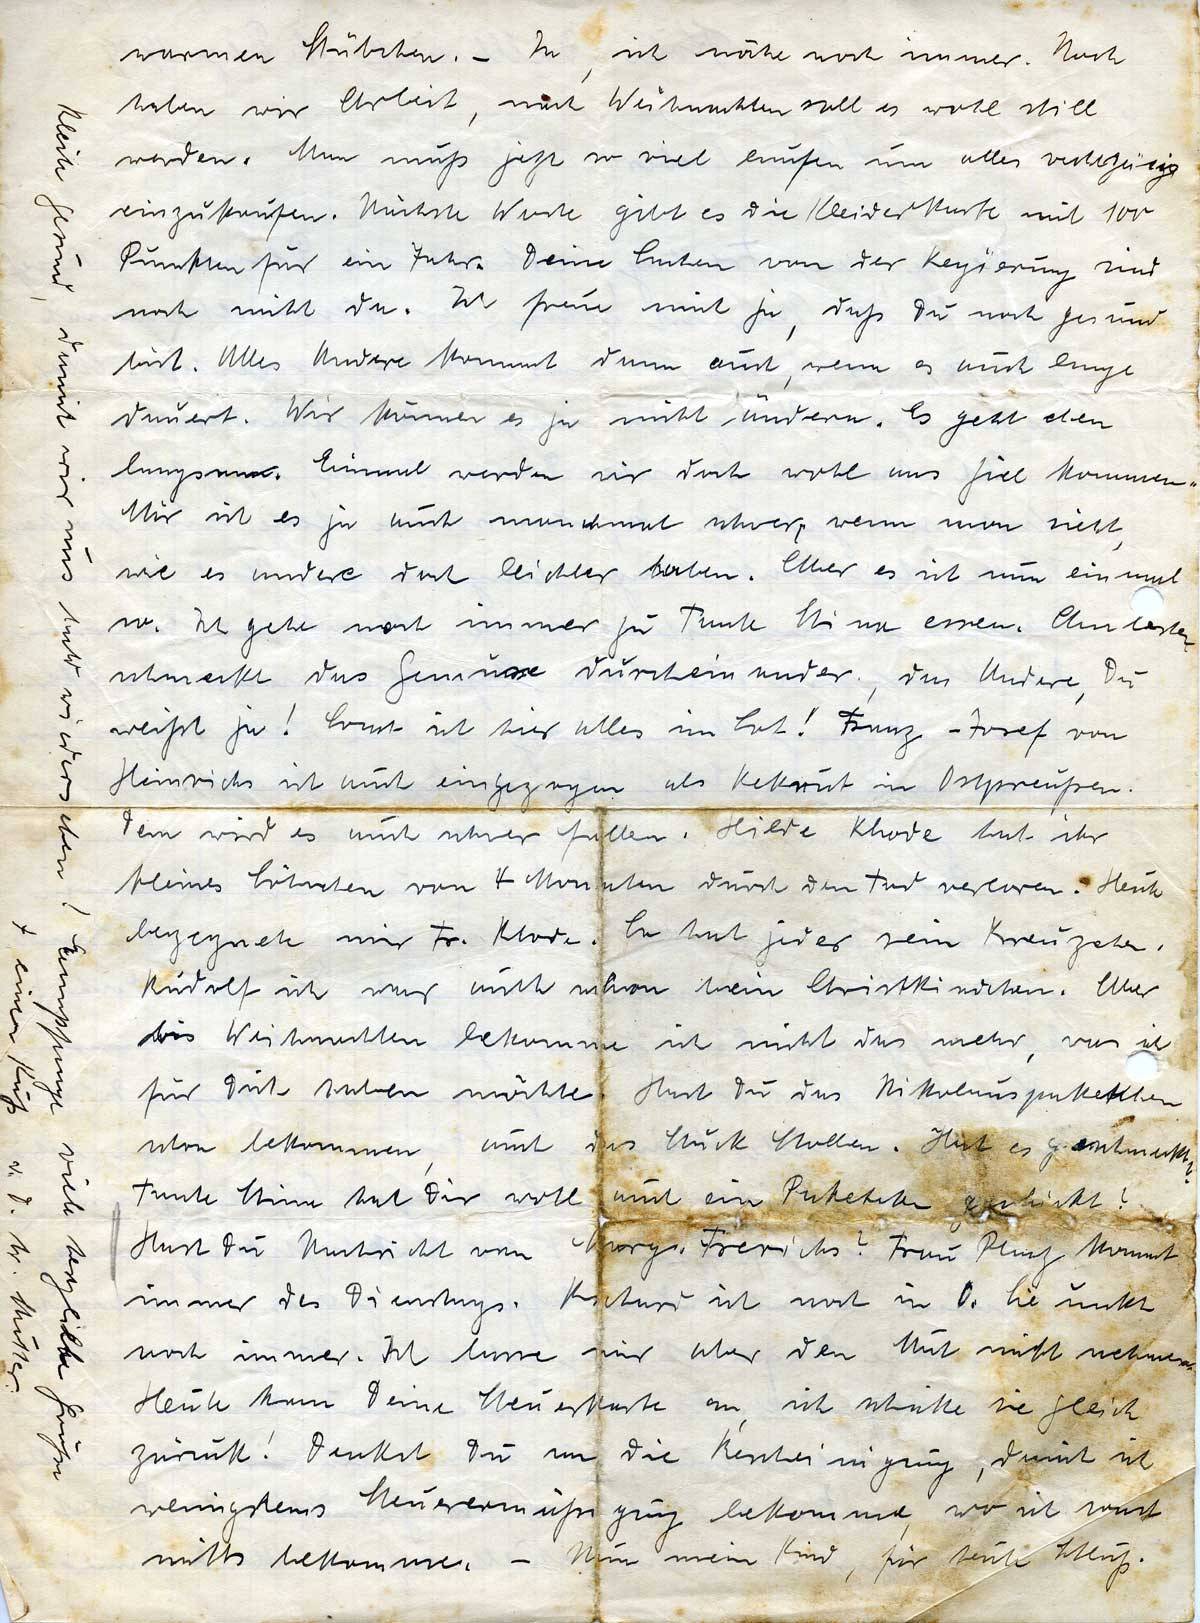 warmen Stübchen. – Ja, ich nähe noch immer. Noch
haben wir Arbeit, nach Weihnachten soll es wohl still
werden. Man muß jetzt so viel laufen um alles rechtzeitig
einzukaufen. Nächste Woche gibt es die Kleiderkarte mit 100
Punkten für ein Jahr. Deine Sachen von der Regierung sind
noch nicht da. Ich freue mich ja, daß Du noch gesund
bist. Alles Andere kommt dann auch, wenn es auch lange
dauert. Wir können es ja nicht ändern. Es geht eben
langsam. Einmal werden wir doch wohl ans Ziel kommen.
Mir ist es ja auch manchmal schwer, wenn man sieht,
wie es andere doch leichter haben. Aber es ist nun einmal
so. Ich gehe noch immer zu Tante Stina essen. Am besten
schmeckt das Gemüse durcheinander, das Andere, Du
weißt ja! Sonst ist hier alles im Lot! Franz-Josef von
Heinrichs ist auch eingezogen als Rekrut in Ostpreußen.
Dem wird es auch schwer fallen. Hilde Rhode hat ihr
kleines Söhnchen von 4 Monaten durch den Tod verloren. Heute
begegnete mir Fr. Rhode. So hat jeder sein Kreuzchen.
Rudolf ich war auch schon beim Christkindchen. Aber
bis Weihnachten bekomme ich nicht das mehr, was ich
für Dich haben möchte. Hast Du das Nikolauspaketchen
schon bekommen, auch das Stück Stollen. Hat es geschmeckt?
Tante Stina hat Dir wohl auch ein Paketchen geschickt?
Hast Du Nachricht von Frerichs? Frau kommt
immer des Dienstags. Richard ist noch in O. Sie unkt
noch immer. Ich lasse mir aber den Mut nicht nehmen.
Heute kam Deine Steuerkarte an, ich schicke sie gleich
zurück! Denkst Du an die Bescheinigung, damit ich
wenigstens Steuerermäßigung bekomme, wo ich sonst
nichts bekomme. – Nun mein Kind, für heute Schluß.
Bleib gesund, damit wir uns bald wiedersehen! Empfange viele herzliche Grüße
+ einen Kuß v. D. lb. Mutter.